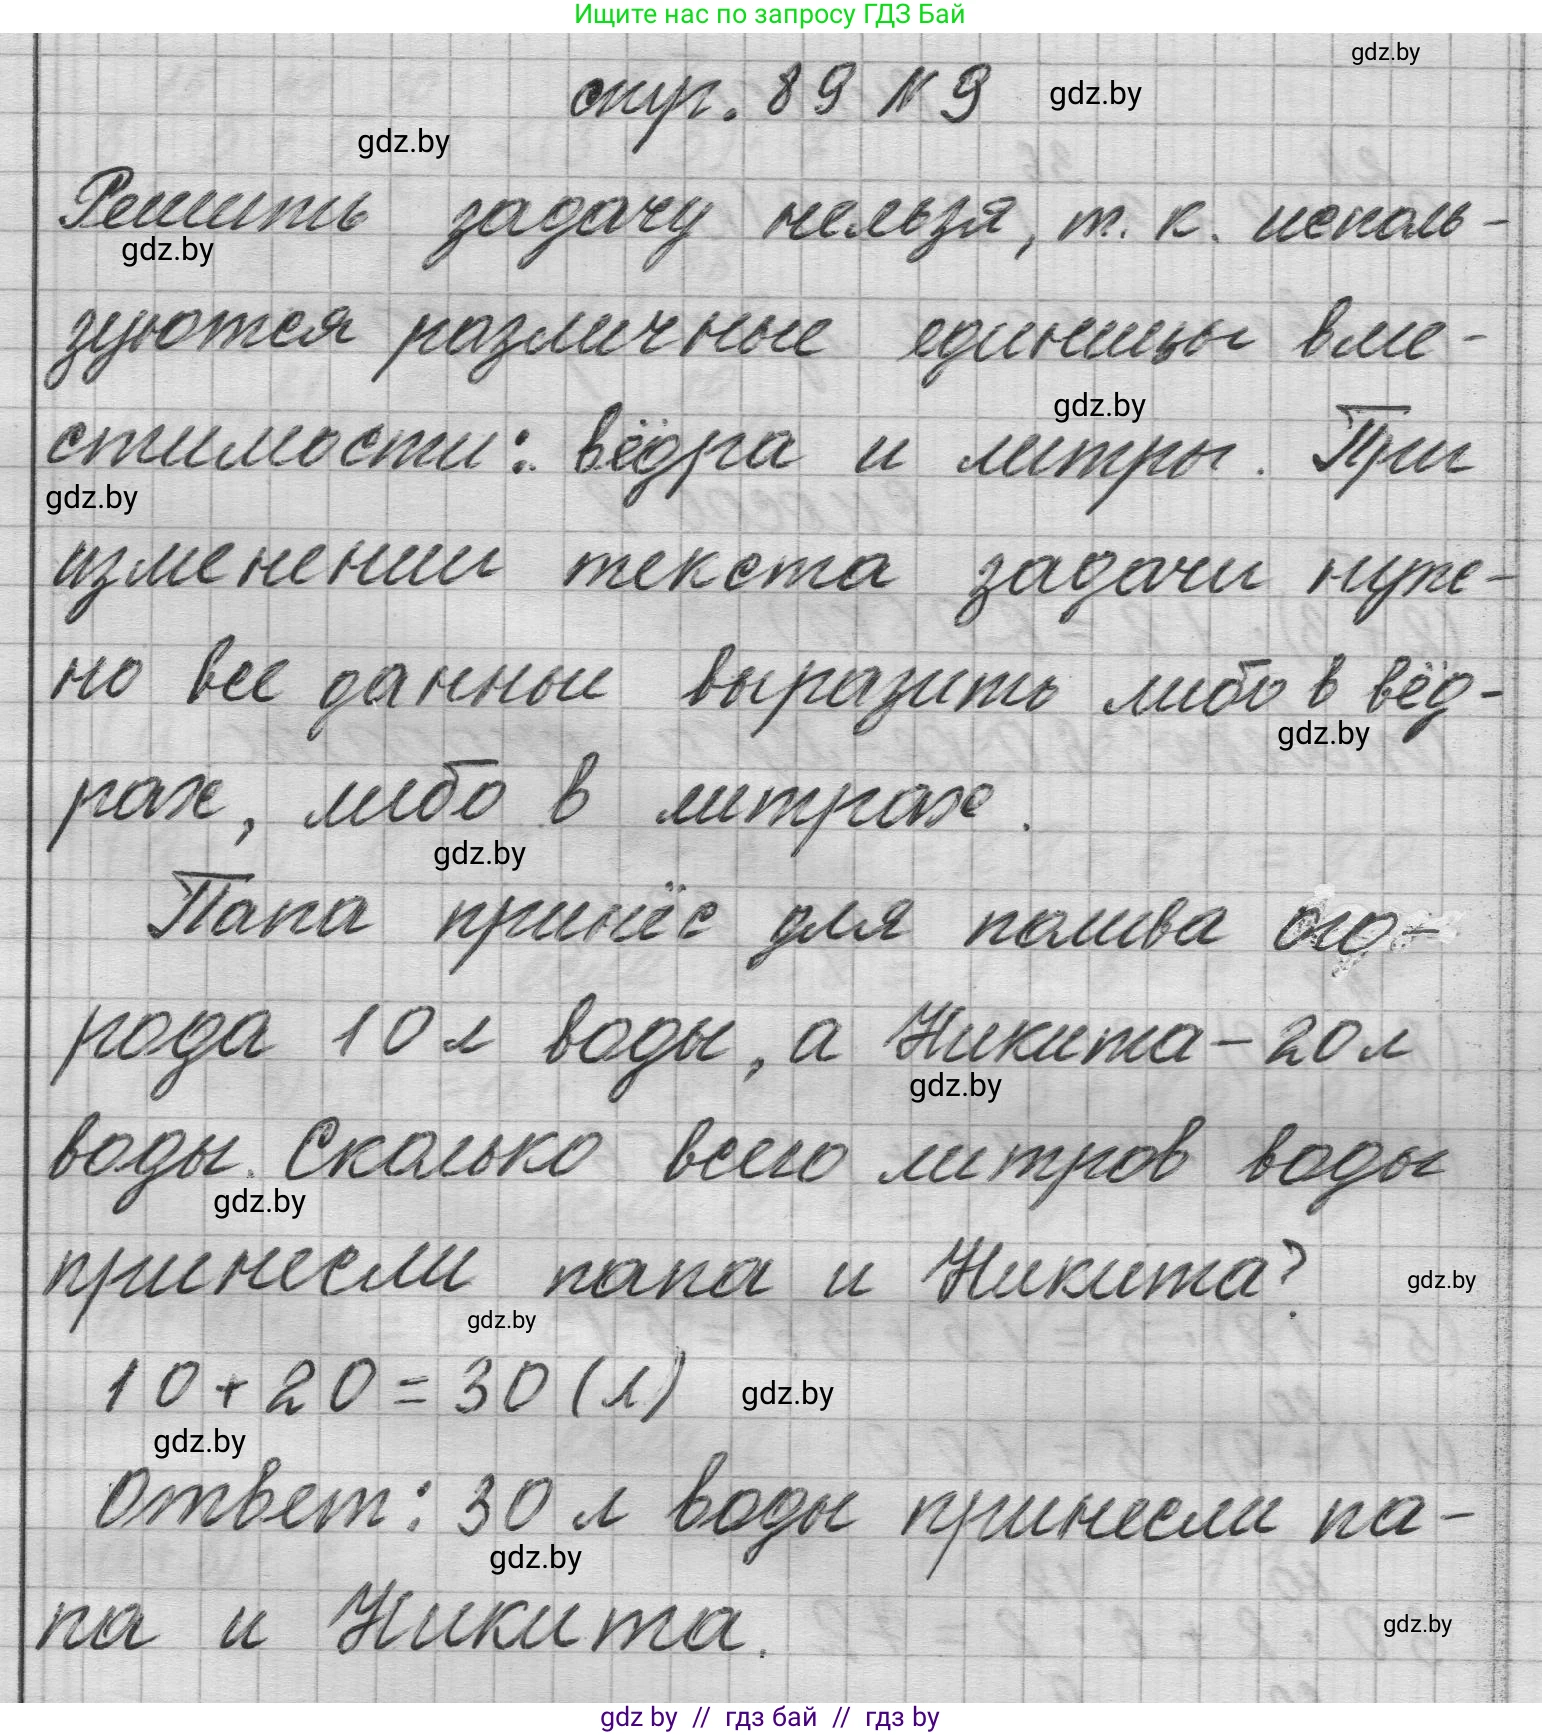 Ищите нас по запросу ГДЗ Бай
gdz.by
стр. 89 №9
gdz.by
gdz.by
Решить задачу нельзя, т. к. исполь-
gdz.by
зуются различные единицы вме-
gdz.by
стимости: вёдра и литры. При
gdz.by
изменении текста задачи нуж-
но все данные выразить либо в вёд-
gdz.by
рах, либо в литрах.
gdz.by
Папа принёс для полива ого-
рода 10 л воды, а Никита – 20 л
gdz.by
воды. Сколько всего литров воды
gdz.by
принесли папа и Никита?
gdz.by
gdz.by
10 + 20 = 30 (л)
gdz.by
gdz.by
Ответ: 30 л воды принесли па-
gdz.by
па и Никита.
gdz.by
gdz by // гдз бай // гдз by